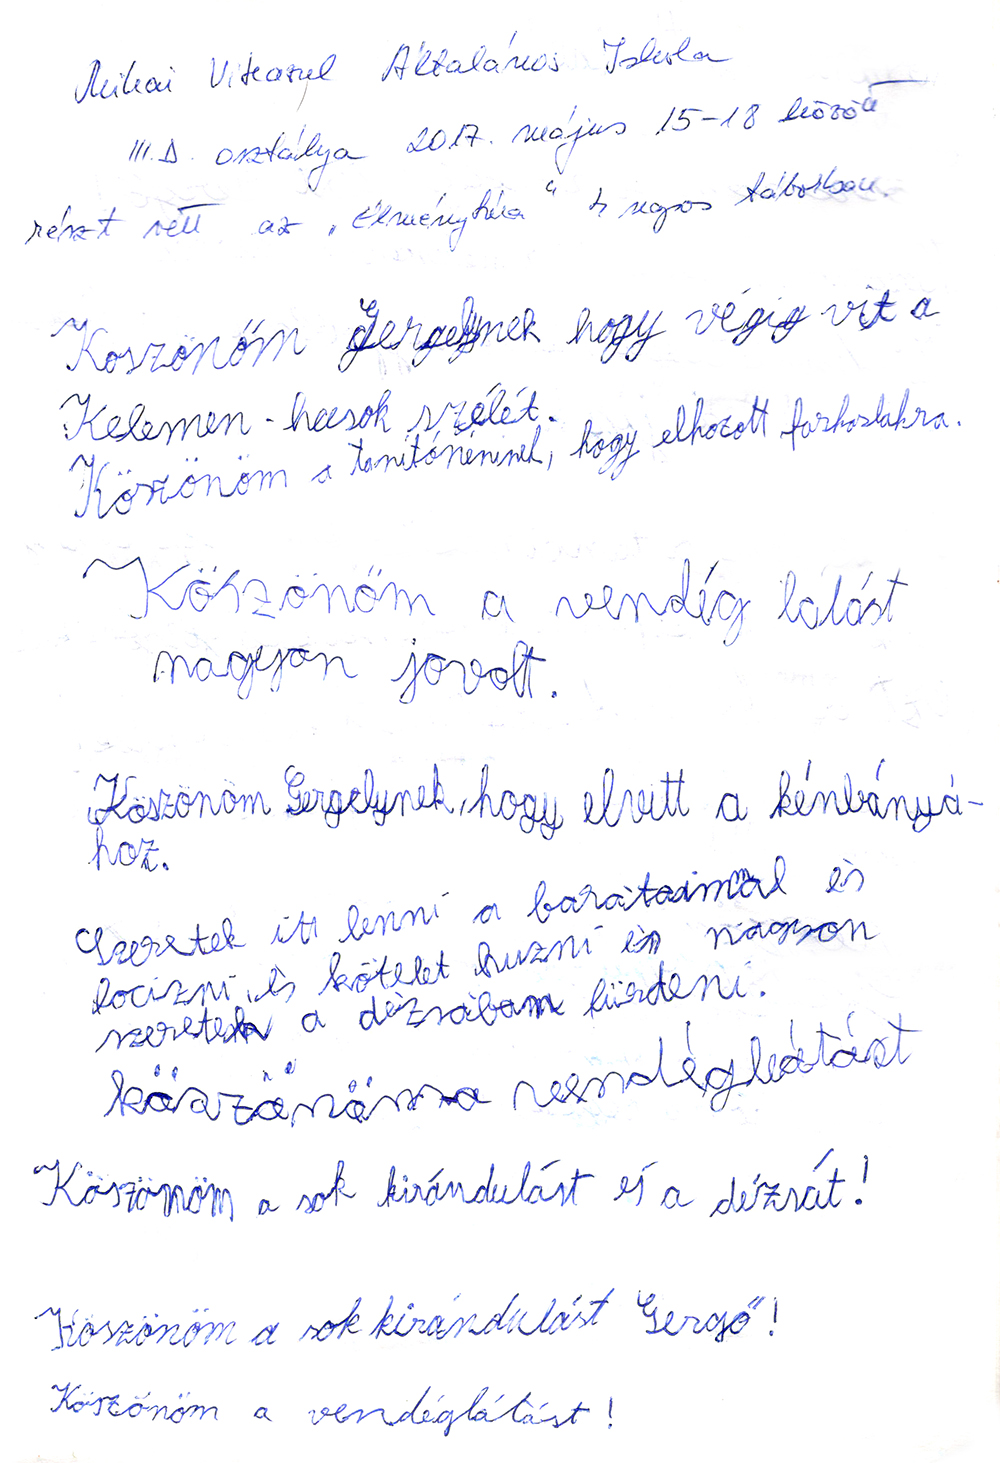 Mihai Viteazul Általános Iskola
III.D. osztálya 2017. május 15-18 között
részt vett az „Élménytúra" 4 napos táborban.
Koszönöm Gergelynek hogy végig vit a
Kelemen-hasok szélét.
Köszönöm a tanítónéninek, hogy elhozott farkaslakra.
Köszönöm a vendég látást
nagyon jovolt.
Köszönöm Gergelynek, hogy elvitt a kénbányá-
hoz.
Szeretek itt lenni a barátaimmal és
focizni, és kötelet huzni és nagyon
szeretek a dézsában fürdeni.
köszönöm a vendéglátást
Köszönöm a sok kirándulást és a dézsát!
Köszönöm a sok kirándulást Gergő!
Köszönöm a vendéglátást!